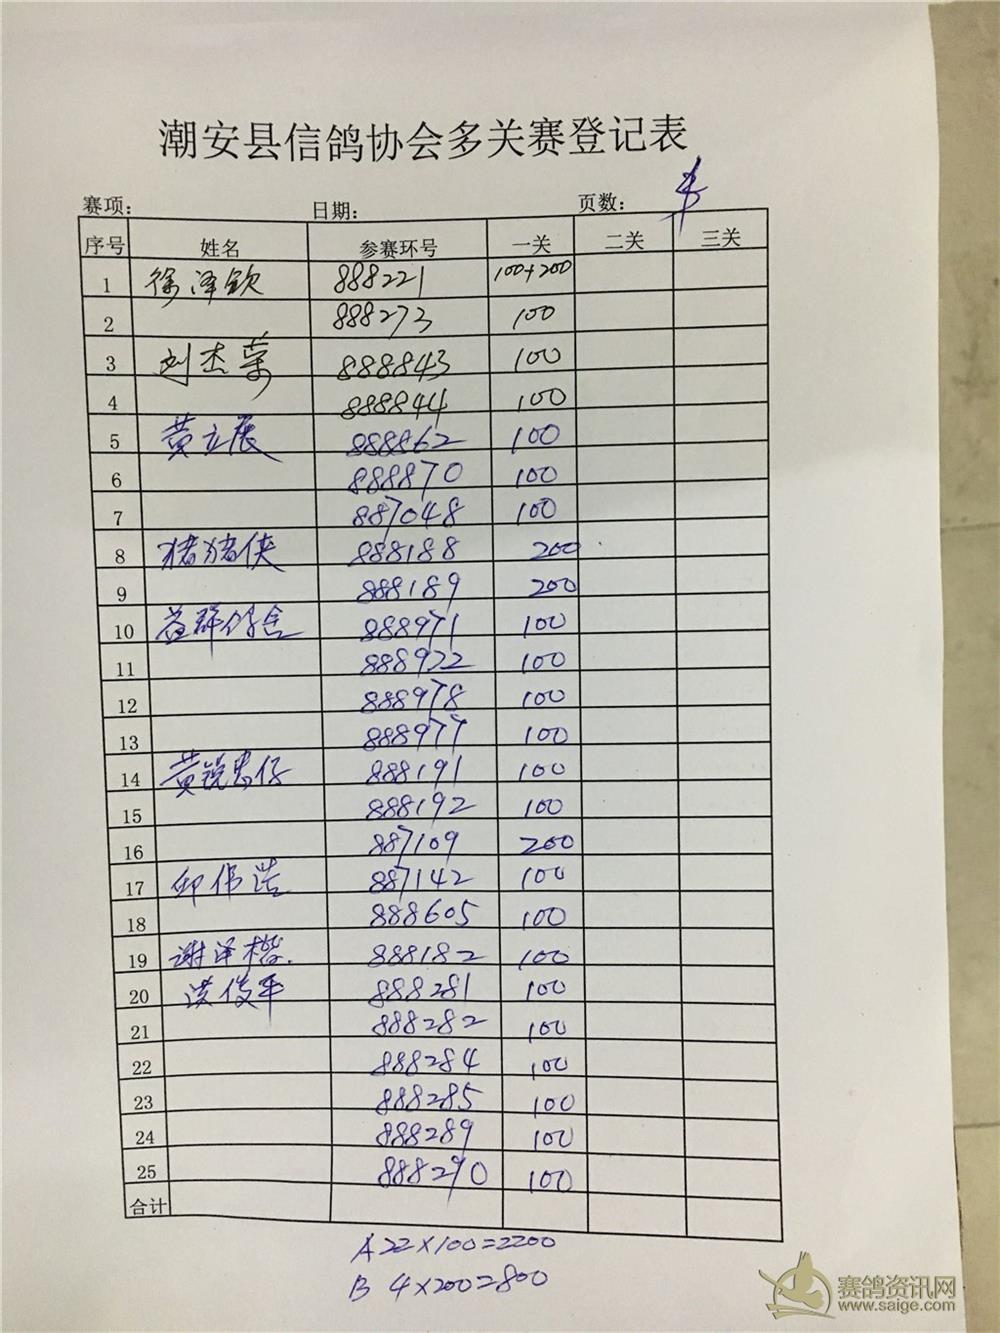 潮安县信鸽协会多关赛登记表
赛项： 日期： 页数：
序号 姓名 参赛环号 一关 二关 三关
1 徐泽钦 888221 100+200
2 888273 100
3 刘杰荣 888843 100
4 888844 100
5 黄立展 888862 100
6 888870 100
7 887048 100
8 猪猪侠 888188 200
9 888189 200
10 益群鸽舍 888971 100
11 888972 100
12 888978 100
13 888977 100
14 黄锐忠仔 888191 100
15 888192 100
16 887109 200
17 邱伟浩 887142 100
18 888605 100
19 谢泽楷 888182 100
20 洪俊平 888281 100
21 888282 100
22 888284 100
23 888285 100
24 888289 100
25 888290 100
合计
A 22×100=2200
B 4×200=800
赛鸽资讯网
www.saige.com